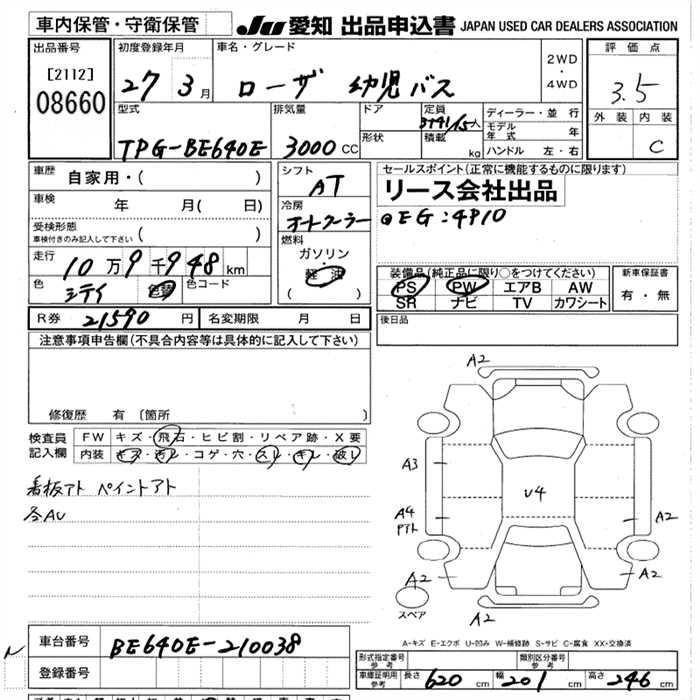 車内保管・守衛保管 JU 愛知 出品申込書 JAPAN USED CAR DEALERS ASSOCIATION
出品番号 初度登録年月 車名・グレード 2WD・4WD 評価点
[2112] 27 3月 ローザ 幼児バス 3.5
08660 型式 排気量 ドア 定員 3+41/1.5人 ディーラー・並行 外装 内装
TPG-BE640E 3000CC 形状 積載 kg モデル年式 年 C
ハンドル 左・右
車歴 自家用・( ) シフト AT セールスポイント(正常に機能するものに限ります)
リース会社出品
車検 年 月( 日) 冷房 オートクーラー
EG:4P10
受検形態 ( )
車検付きのみ記入して下さい
燃料 ガソリン 軽油 ( )
走行 10万9千948km
装備品(純正品に限り○をつけてください) 新車保証書
色 カラーコード
PS PW エアB AW 有・無
SR ナビ TV カワシート
R券 21590円 名変期限 月 日 後日品
注意事項申告欄(不具合内容等は具体的に記入して下さい)
修復歴 有 [箇所 ]
検査員 FW キズ・飛石・ヒビ割・リペア跡・X要
記入欄 内装 キズ・汚レ・コゲ・穴・スレ・キレ・破レ
看板アト ペイントアト
各AU
A2
A3
U4
A4
アト
A2
A2
A2
スペア
A2
A-キズ E-エクボ U-凹み W-補修跡 S-サビ C-腐食 XX-交換済
車台番号 BE640E-210038
形式指定番号 参考 類別区分番号 参考
登録番号 車庫証明用 参考 長さ 620cm 幅 201cm 高さ 246cm